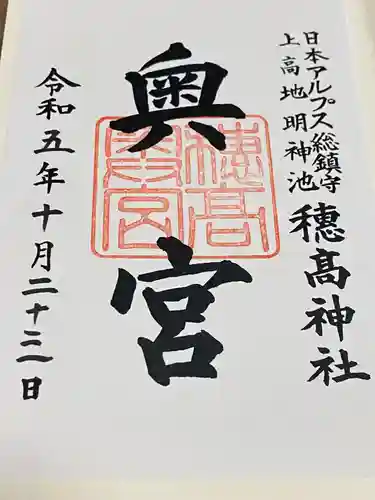 日本アルプス総鎮守
上高地明神池
穂髙神社
奥宮
穂高
奥宮
令和五年十月二十三日